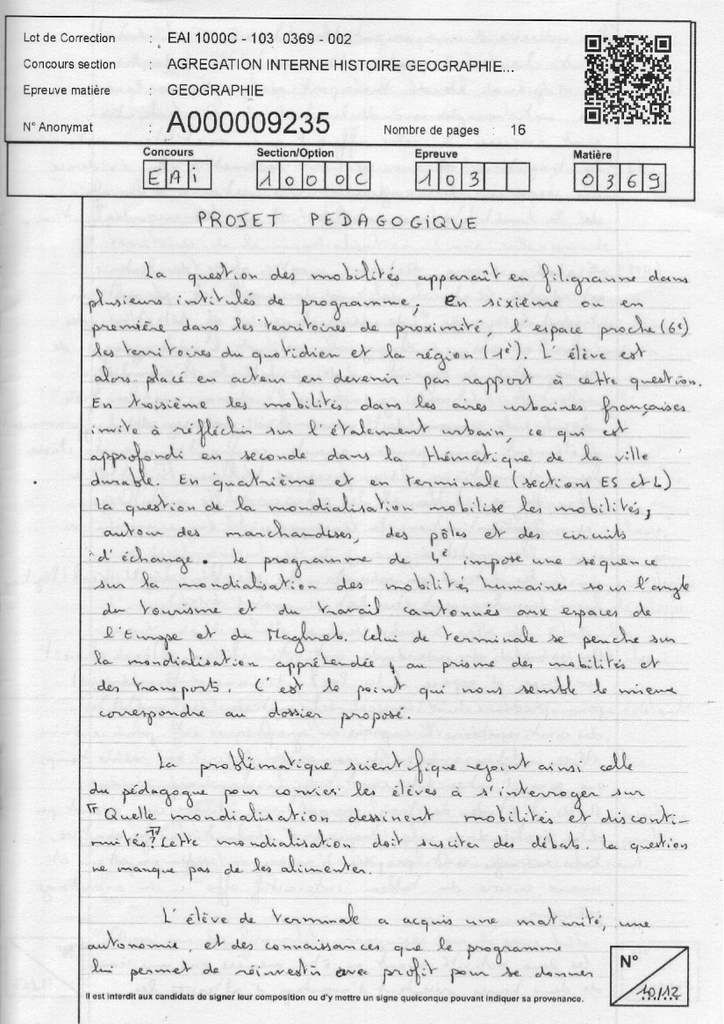 Lot de Correction : EAI 1000C - 103 0369 - 002
Concours section : AGREGATION INTERNE HISTOIRE GEOGRAPHIE...
Epreuve matière : GEOGRAPHIE
N° Anonymat : A000009235 Nombre de pages : 16
Concours Section/Option Epreuve Matière
EAi 1000C 103 0369
PROJET PEDAGOGIQUE
La question des mobilités apparaît en filigranne dans
plusieurs intitulés de programme, En sixième ou en
première dans les territoires de proximité, l'espace proche (6e)
les territoires du quotidien et la région (1e). L'élève est
alors placé en acteur en devenir par rapport à cette question.
En troisième les mobilités dans les aires urbaines françaises
invite à réfléchir sur l'étalement urbain, ce qui est
approfondi en seconde dans la thématique de la ville
durable. En quatrième et en terminale (sections ES et L)
la question de la mondialisation mobilise les mobilités,
autour des marchandises, des pôles et des circuits
d'échange. Le programme de 4e impose une séquence
sur la mondialisation des mobilités humaines sous l'angle
du tourisme et du travail cantonnés aux espaces de
l'Europe et du Maghreb. Celui de terminale se penche sur
la mondialisation appréhendée, au prisme des mobilités et
des transports. C'est le point qui nous semble le mieux
correspondre au dossier proposé.
La problématique scientifique rejoint ainsi celle
du pédagogue pour convier les élèves à s'interroger sur
" Quelle mondialisation dessinent mobilités et disconti-
nuités"? Cette mondialisation doit susciter des débats. La question
ne manque pas de les alimenter.
L'élève de terminale a acquis une maturité, une
autonomie, et des connaissances que le programme
lui permet de réinvestir avec profit pour se donner
N°
10/12
Il est interdit aux candidats de signer leur composition ou d'y mettre un signe quelconque pouvant indiquer sa provenance.